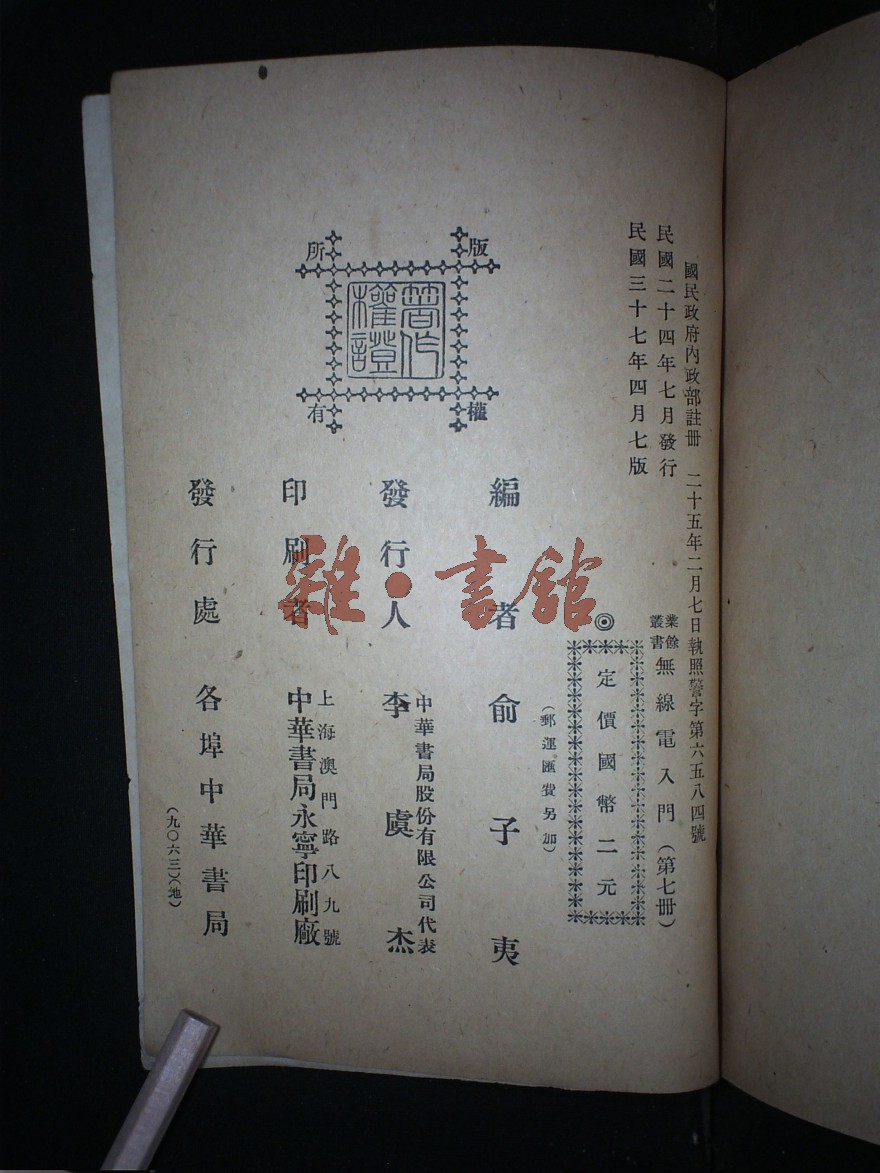 國民政府內政部註冊　二十五年二月七日執照警字第六五八四號
民國二十四年七月發行
民國三十七年四月七版
業餘叢書 無線電入門（第七冊）
◎定價國幣二元
（郵運匯費另加）
編者 俞子夷
發行人 李虞杰
中華書局股份有限公司代表
印刷者 中華書局永寧印刷廠
上海澳門路八九號
發行處 各埠中華書局
（九〇六三）（地）
版權所有
著作權證
雜·書館